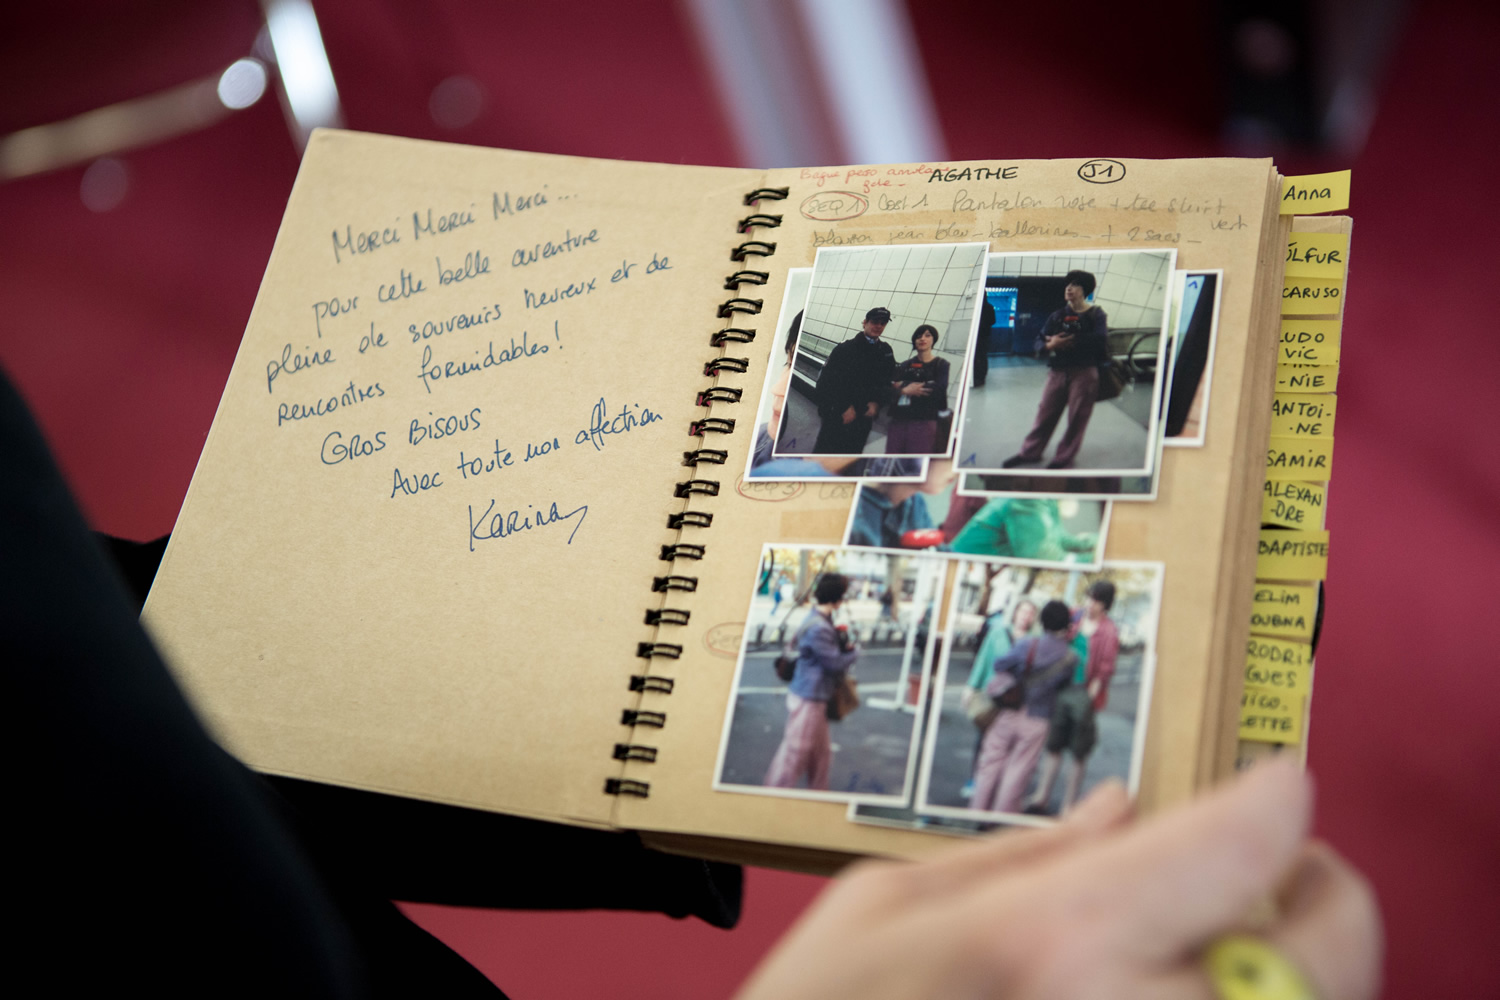 Merci Merci Merci...
pour cette belle aventure
pleine de souvenirs heureux et de
rencontres formidables!
GROS BISOUS
Avec toute mon affection
Karina
AGATHE J1
SEQ 1 Cost 1 Pantalon rose + tee shirt
vert
jean bleu - ballerines - + 2 sacs -
SEQ 3
Anna
ÚLFUR
CARUSO
LUDO
VIC
-NIE
ANTOI-
-NE
SAMIR
ALEXAN
-DRE
BAPTISTE
ELIM
RODRI
GUES
NICO-
LETTE